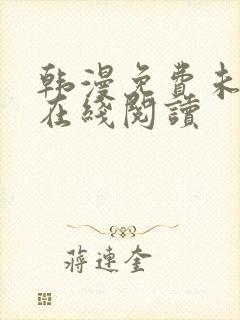 韩漫免费未
在綫閱讀
蔣連奎